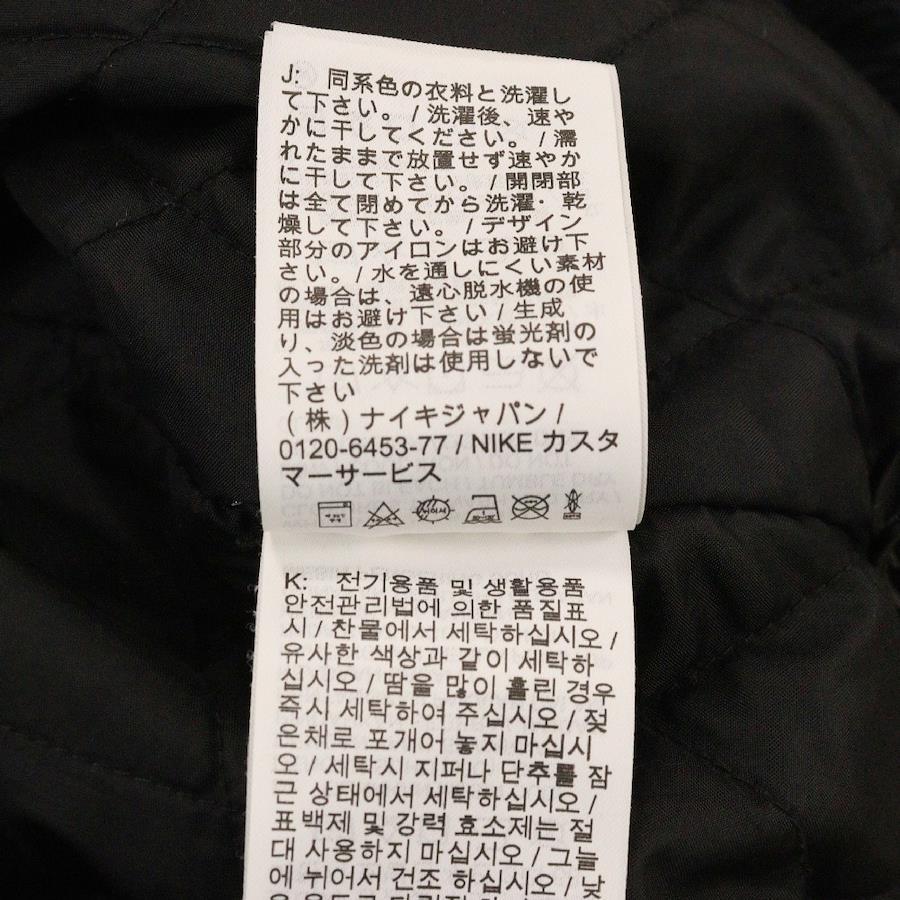 J: 同系色の衣料と洗濯し
て下さい。 / 洗濯後、速や
かに干してください。 / 濡
れたままで放置せず速やか
に干して下さい。 / 開閉部
は全て閉めてから洗濯・乾
燥して下さい。 / デザイン
部分のアイロンはお避け下
さい。/ 水を通しにくい素材
の場合は、遠心脱水機の使
用はお避け下さい / 生成
り、淡色の場合は蛍光剤の
入った洗剤は使用しないで
下さい
(株) ナイキジャパン /
0120-6453-77 / NIKE カスタ
マーサービス
K: 전기용품 및 생활용품
안전관리법에 의한 품질표
시 / 찬물에서 세탁하십시오 /
유사한 색상과 같이 세탁하
십시오 / 땀을 많이 흘린 경우
즉시 세탁하여 주십시오 / 젖
은채로 포개어 놓지 마십시
오 / 세탁시 지퍼나 단추를 잠
근 상태에서 세탁하십시오 /
표백제 및 강력 효소제는 절
대 사용하지 마십시오 / 그늘
에 뉘어서 건조 하십시오 / 낮